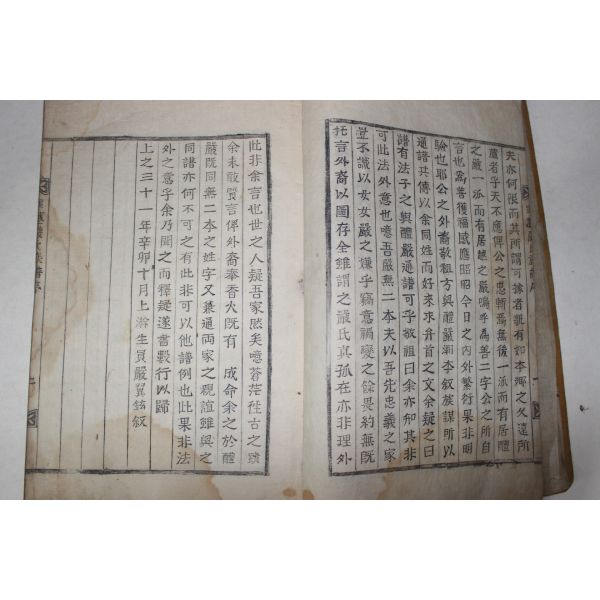 天亦何限而其所謂可據者雖有如李鄕之久遠所
蘆者乎天不應俾公之忠斬焉無後一派而有居醴
之嚴一派而有居越之嚴嗚乎爲善二字公之所自
言也爲善獲福感應昭昭今日之內外繁衍果非明
驗也耶公之外裔敬祖方與醴嚴浦李叙族謀所以
通譜共傳以余同姓而好來求弁首之文余疑之曰
譜有法子之與醴嚴通譜可乎敬祖曰余亦知其非
可此法外意也噫吾嚴無二本夫以吾先忠義之家
豈不識以女女嚴之嫌乎竊意禍變之餘畏約無旣
托言外裔以圖存全雖謂之嚴氏眞孤在亦非理外
此非余言也世之人疑吾家然矣噫蒼茫徃古之蹟
余未敢質言俾外裔奉香火旣有 成命余之於醴
嚴旣同無二本之姓字又兼通兩家之親誼雖與之
同譜亦何不可之有此非可以他譜例也此果非法
外之意乎余乃聞之而釋疑遂書數行以歸
上之三十一年辛卯十月上澣生員嚴翼鉉叙